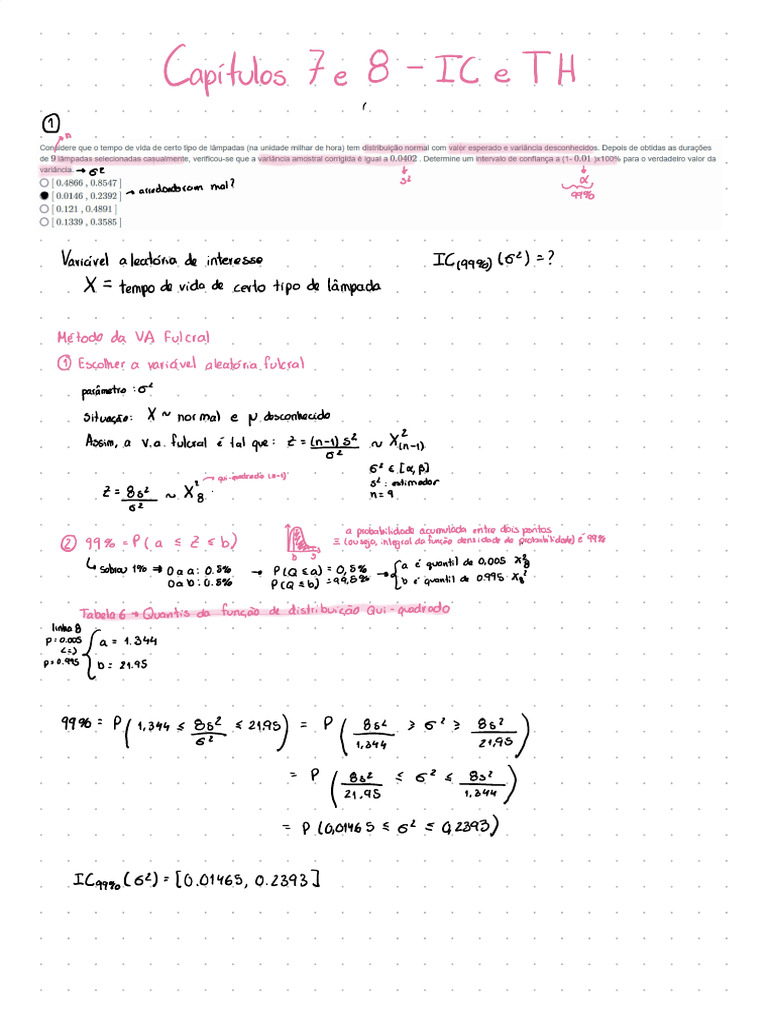 Capítulos 7 e 8 - IC e TH
①
n
Considere que o tempo de vida de certo tipo de lâmpadas (na unidade milhar de hora) tem distribuição normal com valor esperado e variância desconhecidos. Depois de obtidas as durações
de 9 lâmpadas selecionadas casualmente, verificou-se que a variância amostral corrigida é igual a 0.0402 . Determine um intervalo de confiança a (1- 0.01 )x100% para o verdadeiro valor da
variância. → σ²
s²
α
99%
[ 0.4866 , 0.8547 ]
[ 0.0146 , 0.2392 ] → arredondaram mal?
[ 0.121 , 0.4891 ]
[ 0.1339 , 0.3585 ]
Variável aleatória de interesse
IC(99%) (σ²) = ?
X = tempo de vida de certo tipo de lâmpada
Método da VA Fulcral
① Escolher a variável aleatória fulcral
parâmetro : σ²
Situação: X ~ normal e μ desconhecido
Assim, a v.a. fulcral é tal que: Z = (n-1) s² / σ² ~ X²(n-1)
σ² ∈ [α, β]
s² : estimador
n = 9
Z = 8s² / σ² ~ X²8 → qui-quadrado (n-1)
② 99% = P( a ≤ Z ≤ b)
a probabilidade acumulada entre dois pontos
≡ (ou seja, integral da função densidade de probabilidade) é 99%
↳ sobra 1% ⇒ 0 a a : 0.5% → P(Q ≤ a) = 0,5% → { a é quantil de 0,005 X²8
0 a b : 0.5% P(Q ≤ b) = 99,5% b é quantil de 0.995 X²8
Tabela 6 → Quantis da função de distribuição Qui-quadrado
linha 8
p = 0.005 { a = 1.344
(=)
p = 0.995 b = 21.95
99% = P ( 1,344 ≤ 8s² / σ² ≤ 21,95 ) = P ( 8s² / 1,344 ≥ σ² ≥ 8s² / 21,95 )
= P ( 8s² / 21,95 ≤ σ² ≤ 8s² / 1,344 )
= P (0,01465 ≤ σ² ≤ 0,2393)
IC99% (σ²) = [0.01465, 0.2393]